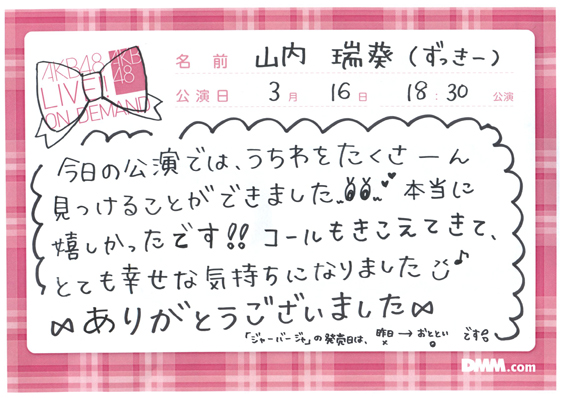 AKB48 AKB48
LIVE!!
ON DEMAND
名前 山内 瑞葵(ずっきー)
公演日 3月 16日 18:30 公演
今日の公演では、うちわをたくさーん
見つけることができました 本当に
嬉しかったです!! コールもきこえてきて、
とても幸せな気持ちになりました♪
ありがとうございました
「ジャーバージャ」の発売日は、昨日→おととい です
×
DMM.com